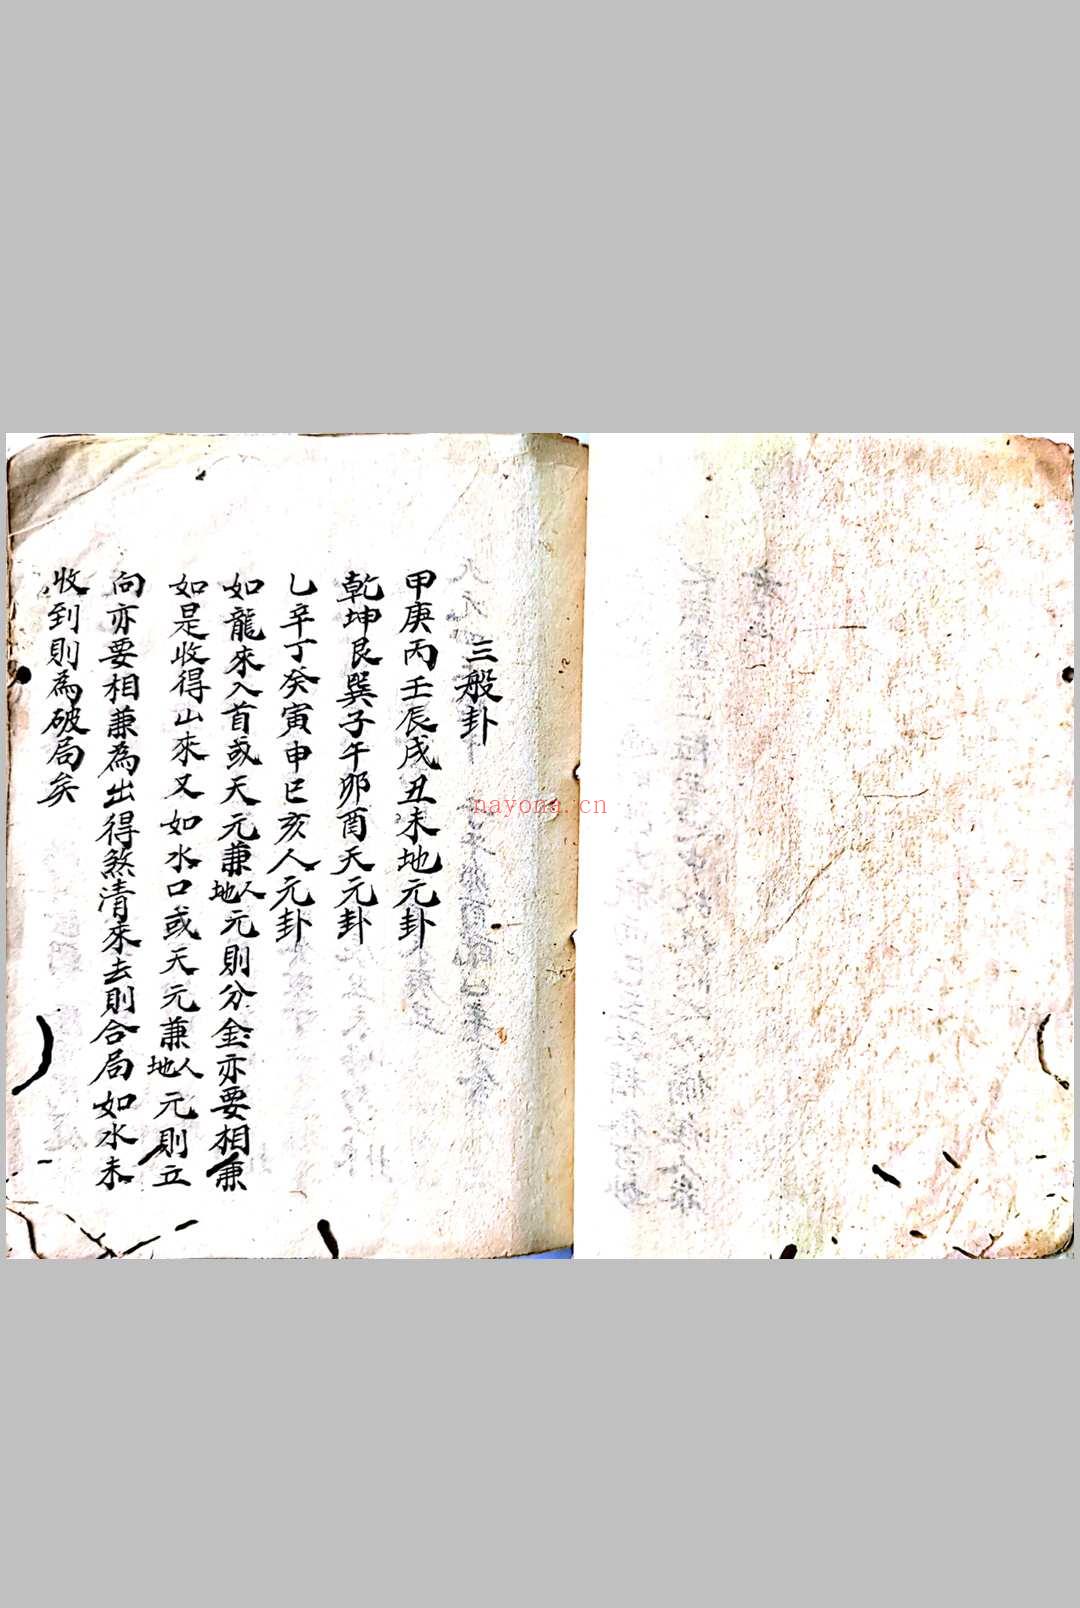 三般卦
甲庚丙壬辰戌丑未地元卦
乾坤艮巽子午卯酉天元卦
乙辛丁癸寅申巳亥人元卦
如龍來入首或天元兼人地元則分金亦要相兼
如是收得山來又如水口或天元兼人地元則立
向亦要相兼為出得煞清來去則合局如水未
收到則為破局矣
nayona.cn